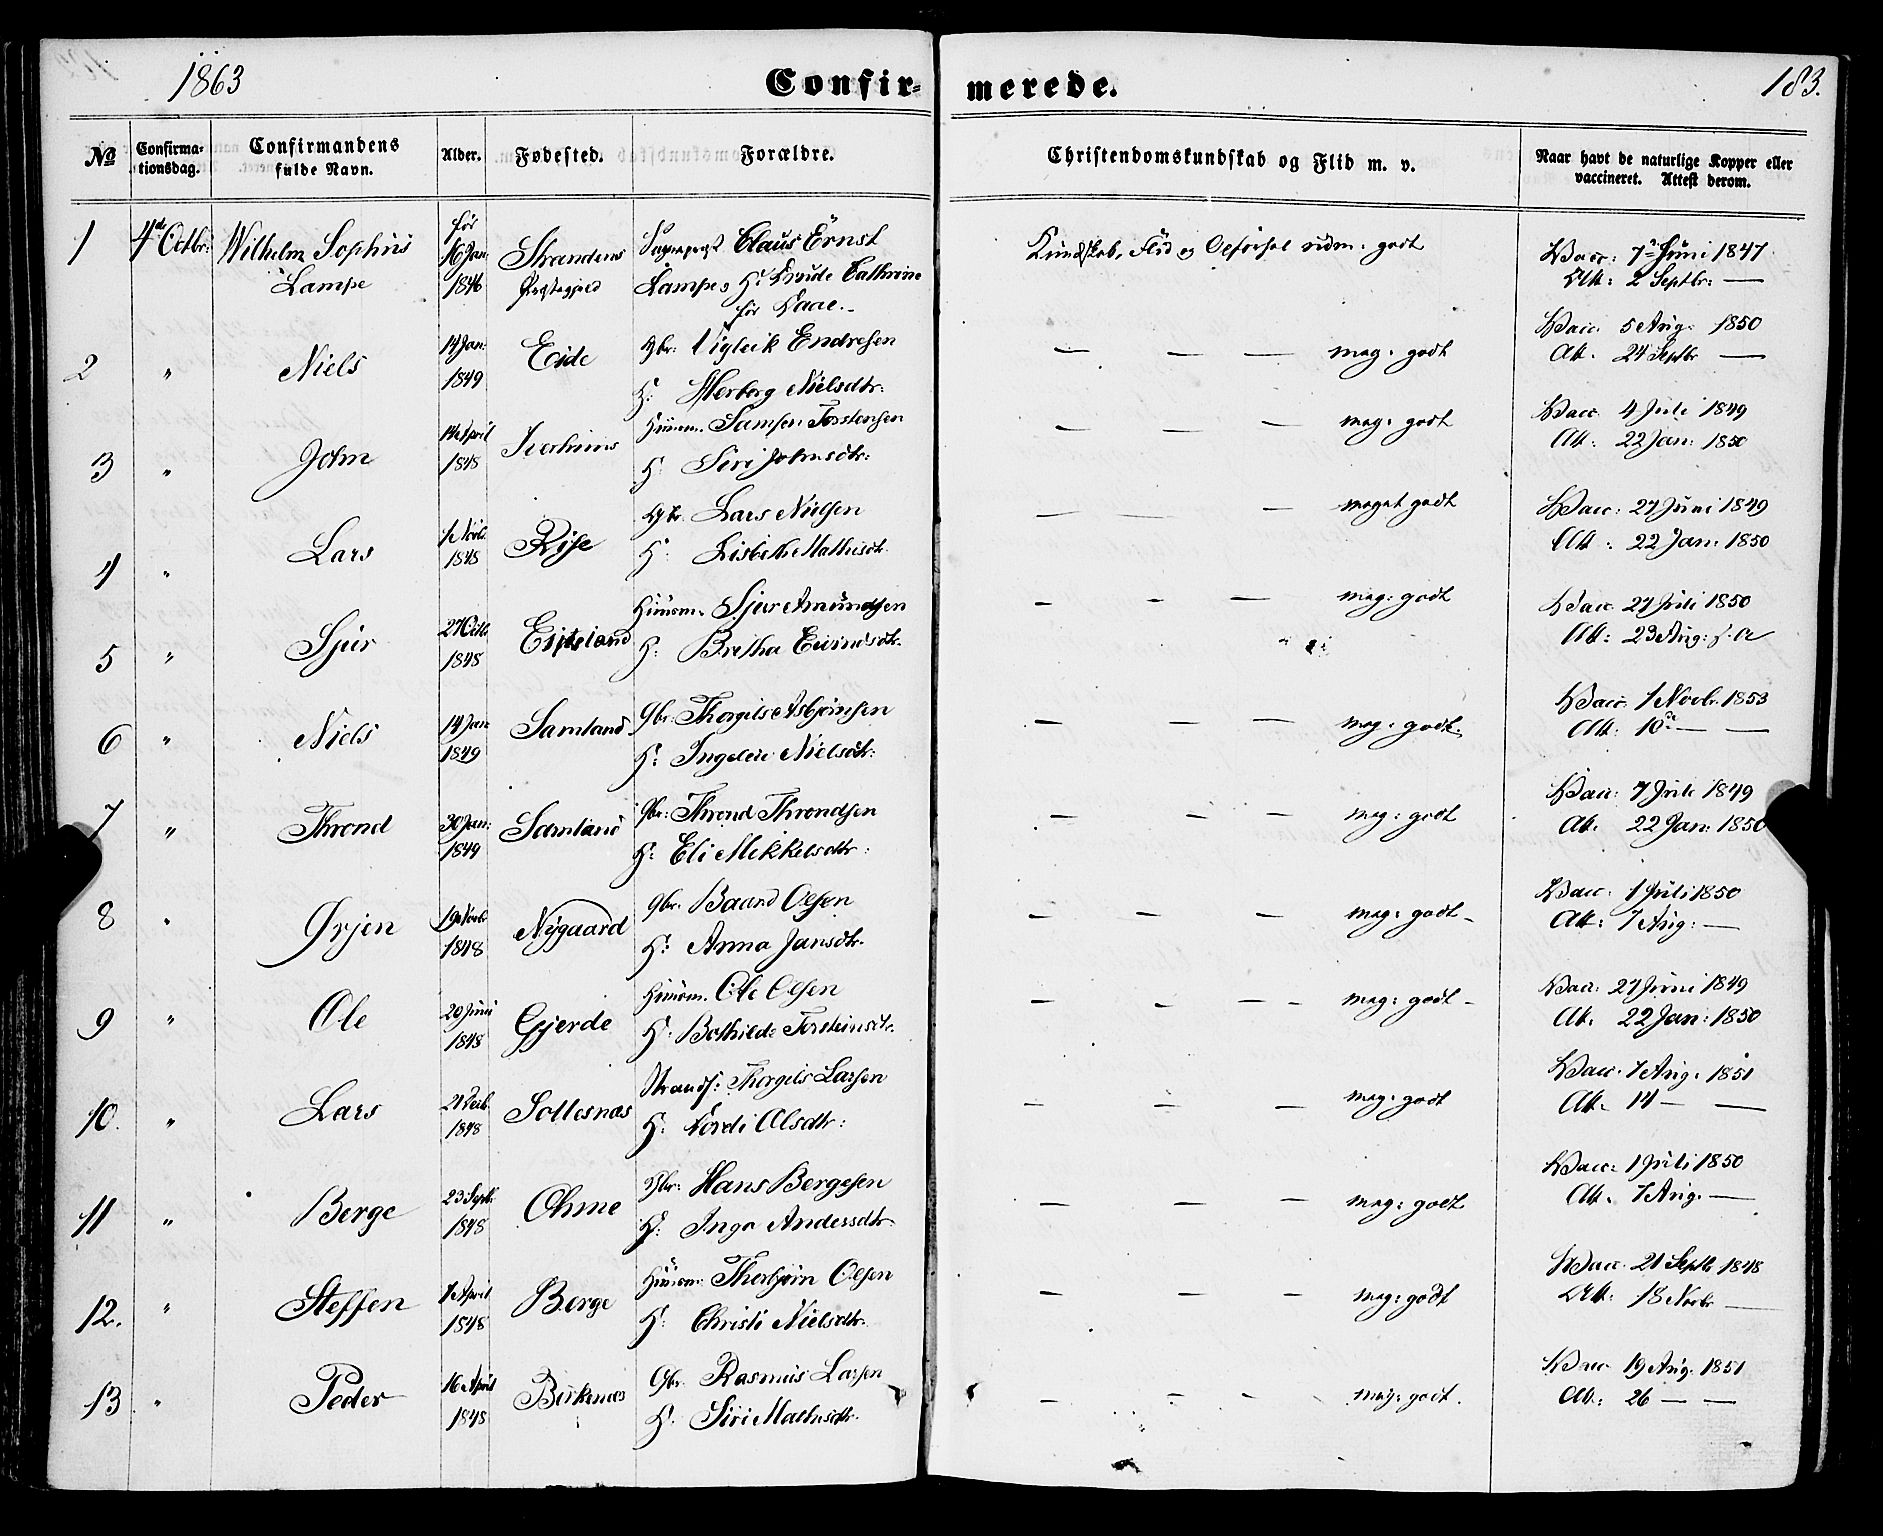 1863
Confirmerede.
183.
No
Confirmationsdag.
Confirmandens fulde Navn.
Alder.
Fødested.
Forældre.
Christendomskundskab og Flid m. v.
Naar havt de naturlige Kopper eller vaccineret. Attest derom.
1 4de Octbr: Wilhelm Sophus Lampe
før 16 Jan: 1846
Strandens Præstegjeld
Claus Ernst
Lampe og H: Cathrine
før
Kundskab, Flid og Opførsel udm. godt
Vacc: 7de Juni 1847
Att: 2 Septbr: —
2 " Niels 14 Jan: 1849 Eide
Gbr: Vigleik Endresen
H: Herborg Nielsdtr:
— — — meg: godt
Vacc. 5 Aug: 1850
Att. 24 Septbr —
3 " John 14 April 1848
Huusm. Samson Torstensen
H: Siri Johnsdtr:
— — — meg: godt
Vacc. 4 Juli 1849
Att: 22 Jan: 1850
4 " Lars 1 Novb. 1848 Røse
Gbr. Lars Nielsen
H: Lisbeth Mathisdt.
— — — meget godt
Vacc: 27 Juni 1849
Att: 22 Jan: 1850
5 " Sjur 27 Octb 1848
Huusm. Sjur Amundsen
H: Britha
— — — meg: godt
Vacc 27 Juli 1850
Att: 23 Aug: s. A
6 " Niels 14 Jan 1849 Samland
Gbr. Thorgils Asbjørnsen
H: Ingeleie Nielsdtr:
— — — meg: godt.
Vacc. 1 Novbr. 1853
Att: 10de — —
7 " Thrond 30 Jan: 1849 Samland
Gbr: Thrond Throndsen
H: Eli Mikkelsdtr:
— — — meg: godt
Vacc: 7 Juli 1849
Att. 22 Jan: 1850
8 " Ørjen 19 Novbr 1848 Nygaard
Gbr. Baard Olsen
H: Anna Jansdtr.
— — — meg: godt —
Vacc. 1 Juli 1850
Att: 7 Aug: —
9 " Ole 20 Juni 1848 Gjerde
Huusm. Ole Olsen
H: Bothilde Torsteinsdtr.
— — — — meg: godt —
Vacc: 27 Juni 1849
Att. 22 Jan: 1850
10. " Lars 1848 Sollesnæs
Strands: Thorgils Larsen
H: Olsdtr:
— — — meg: godt
Vacc. 7 Aug: 1851
Att. 14 — —
11 " Berge 23 Septb 1848 Ohme
Gbr: Hans Bergesen
H: Inga Andersdtr.
— — — meg: godt
Vacc: 1 Juli 1850
Att. 7 Aug. —
12. " Steffen 1 April 1848 Berge
Huusm: Thorbjørn Olsen
H: Christi Nielsdtr.
— — — meg: godt
Vacc. 21 Septb 1848
Att: 18 Novbr —
13 " Peder 16 April 1848 Birkenæs
Gbr. Rasmus Larsen
H: Siri Mathisdtr.
— — — meg: godt.
Vacc 19 Aug. 1851
Att: 26 — —